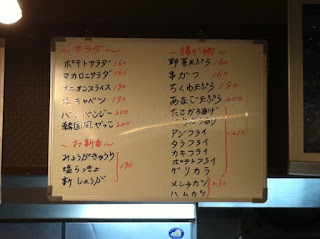 ～サラダ～
ポテトサラダ 160
マカロニサラダ 160
オニオンスライス 190
塩キャベツ 190
バンバンジー 200
韓国風やっこ 200
～お新香～
みょうがきゅうり
塩らっきょ 190
新しょうが
～揚げ物～
野菜天ぷら 160
串かつ 160
ちくわ天ぷら 190
あなご天ぷら 200
たこから揚げ
アジフライ 210
タラフライ
カキフライ
ポテトフライ
ゲソカラ
メンチカツ 230
ハムカツ